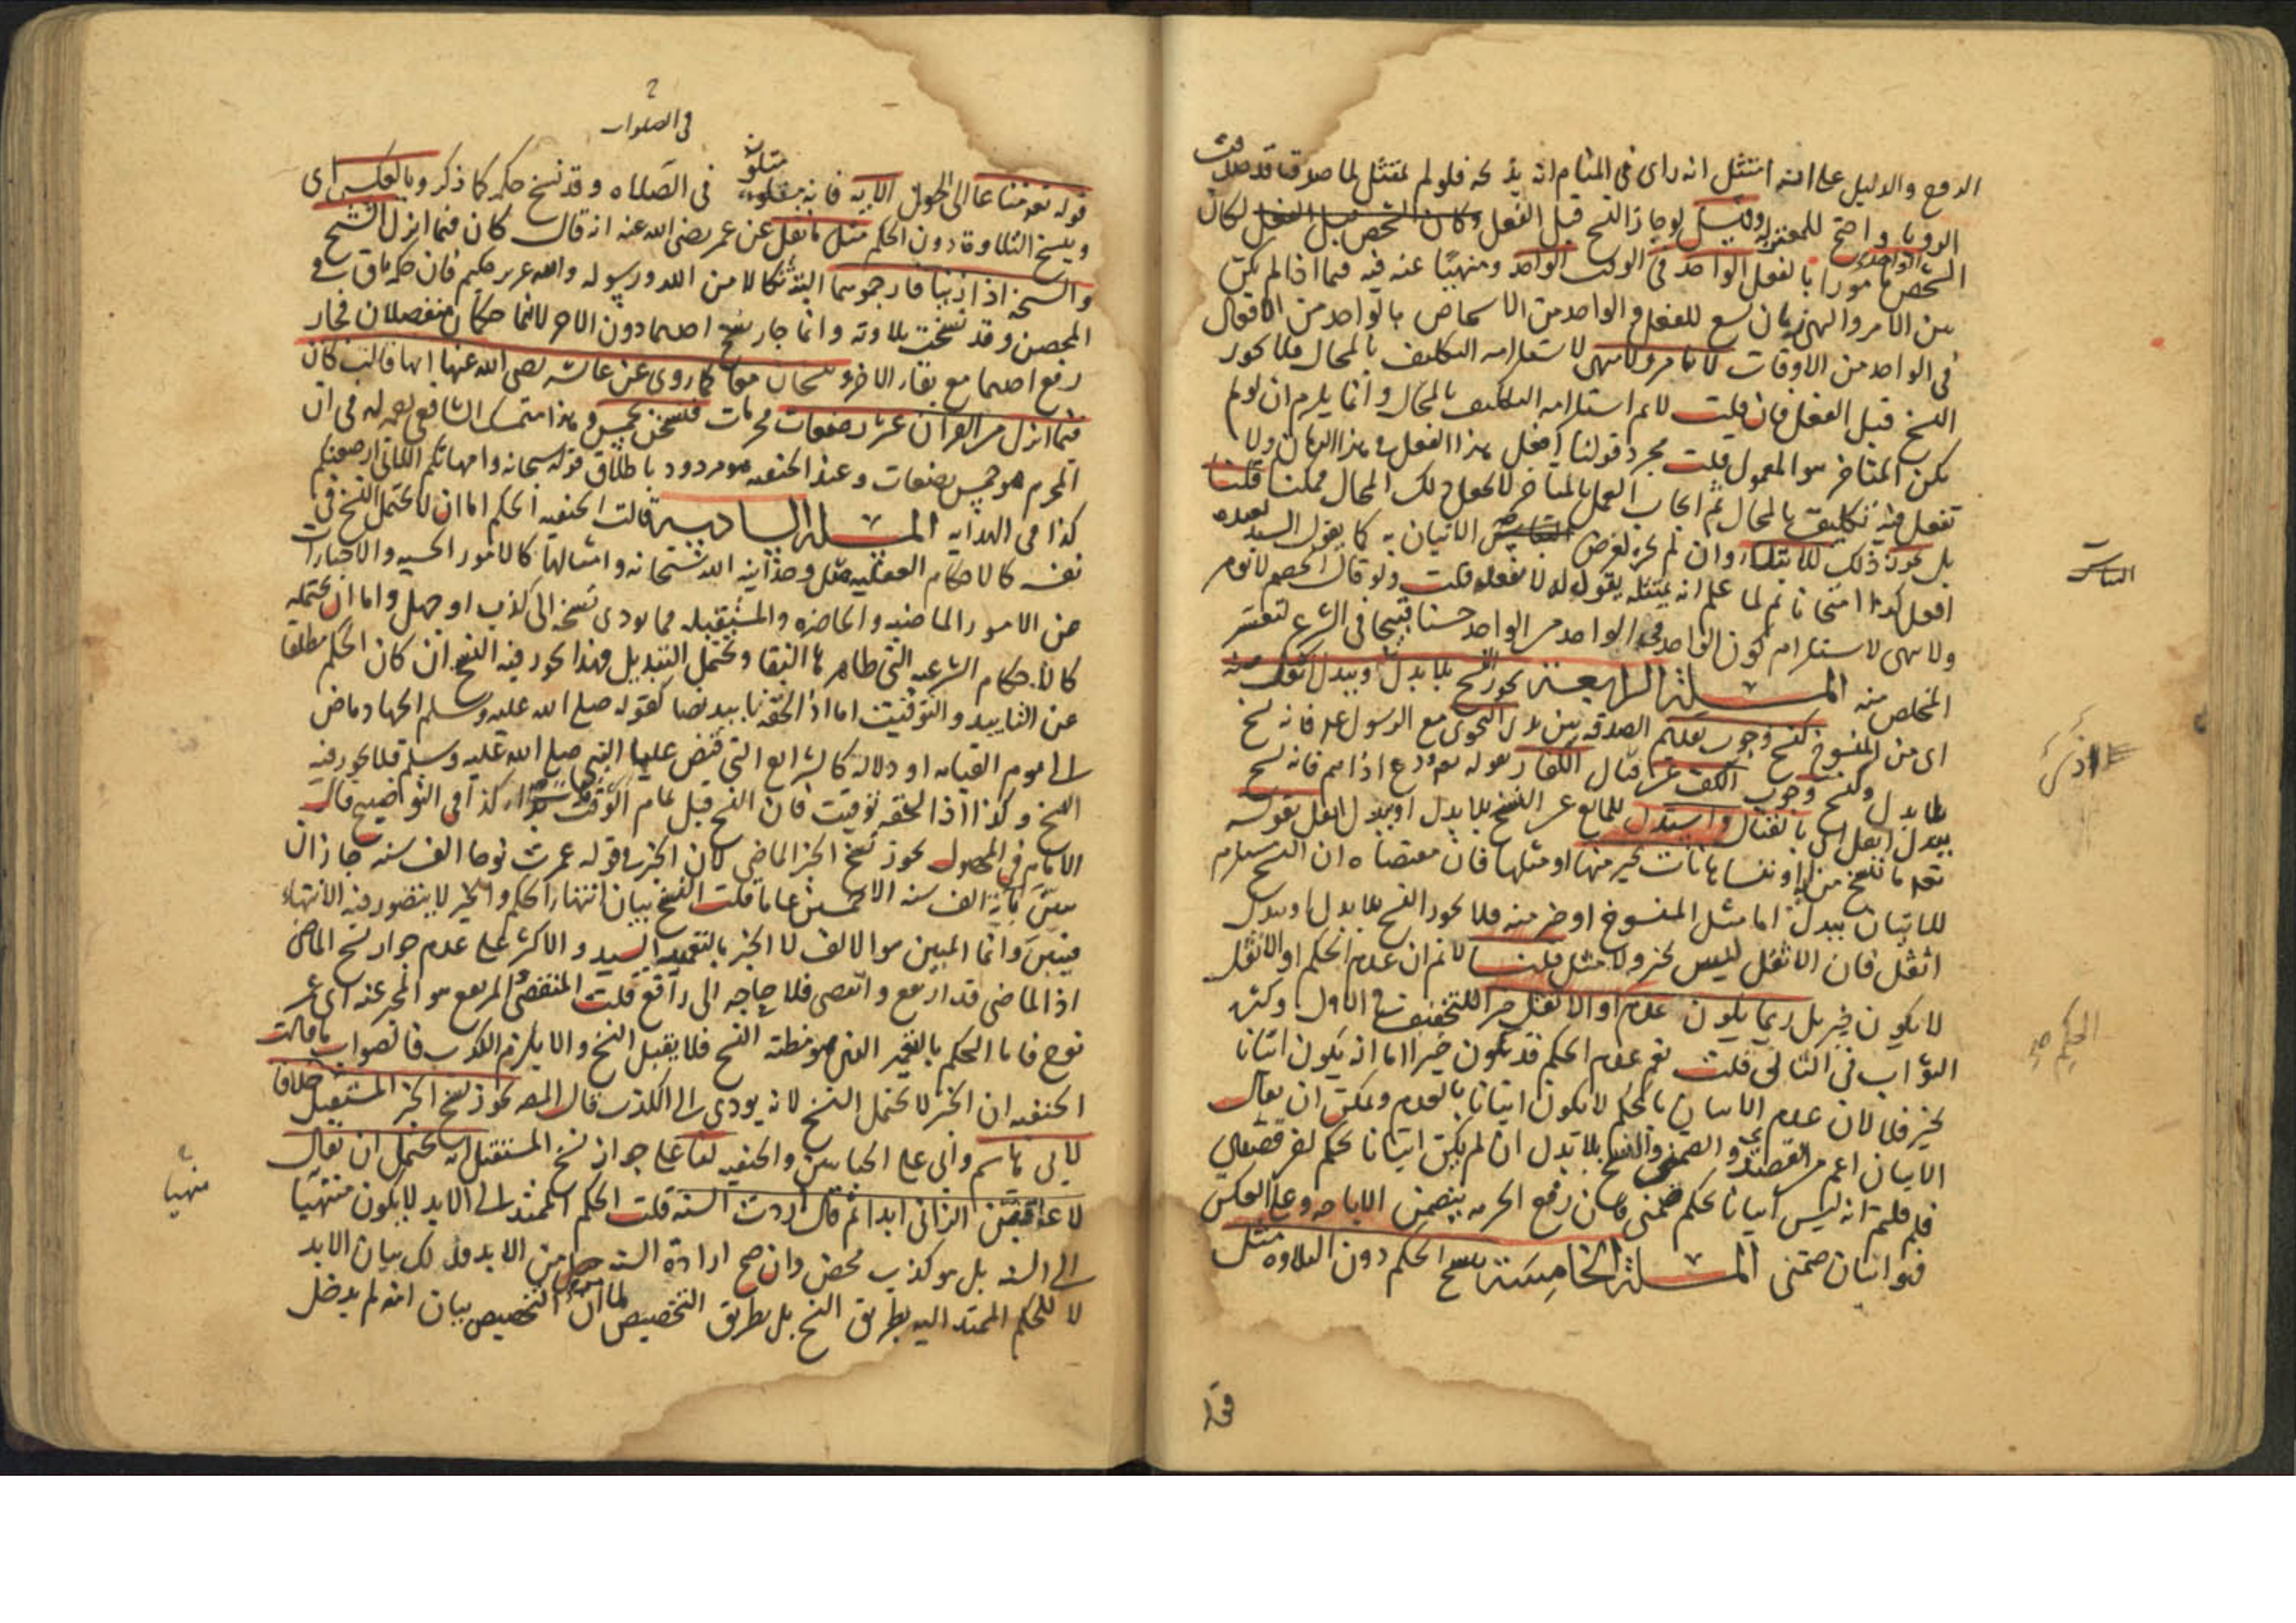 الدفع والدليل على انه امتثل انه راى في المنام انه يذبحه فلو لم يمتثل لما صدق قد صدقت
الرويا واحتج للمعتزله وقيل لو جاز النسخ قبل الفعل لكان
الشخص الواحد مامورا بالفعل الواحد في الوقت الواحد ومنهيا عنه فيه فيما اذا لم يكن
بين الامر والنهي زمان يسع للفعل والواحد من الاشخاص بالواحد من الافعال
في الواحد من الاوقات لا يامر ولا ينهى لاستلزامه التكليف بالمحال فلا يجوز
النسخ قبل الفعل فان قلت لا نم استلزامه التكليف بالمحال وانما يلزم ان لو لم
يكن المتاخر هو المعمول قلت مجرد قولنا افعل هذا الفعل في هذا الزمان ولا
تفعل فيه تكليف بالمحال ثم ايجاب العمل بالمتاخر لا يجعل ذلك المحال ممكنا قلنا
بل يجوز ذلك للابتلاء وان لم يجز لغرض الاتيان به كما يقول السيد لعبده
افعل كذا امتحانا ثم لما علم انه يمتثله يقول له لا تفعله قلت ولو قال الخصم لا يامر
ولا ينهى لاستلزام كون الواحد في الواحد من الواحد حسنا قبيحا في الشرع لتعسر
المخلص منه المسئلة الرابعة يجوز النسخ بلا بدل وببدل اثقل منه
اى من المنسوخ كنسخ وجوب تقديم الصدقه بين يدى النجوى مع الرسول عم فانه نسخ
بلا بدل وكنسخ وجوب الكف عن قتال الكفار بقوله تع ودع اذاهم فانه نسخ
ببدل اثقل اى بالقتال واستدل للمانع عن النسخ بلا بدل او ببدل اثقل بقوله
تعه ما ننسخ من اية او ننسها نات بخير منها او مثلها فان مقتضاه ان النسخ مستلزم
للاتيان ببدل اما مثل المنسوخ او خير منه فلا يجوز النسخ بلا بدل او ببدل
اثقل فان الاثقل ليس بخير ولا مثل قلنا لا نم ان عدم الحكم او الاثقل
لا يكون خير بل ربما يكون عدم او الاثقل خيرا للتخفيف في الاول وكثرة
الثواب في الثاني قلت نعم عدم الحكم قد يكون خيرا اما انه يكون اتيانا
بخير فلا لان عدم الاتيان بالحكم لا يكون اتيانا بالعدم ويمكن ان يقال
الاتيان اعم من القصدى والضمنى والنسخ بلا بدل ان لم يكن اتيانا بحكم اخر قصدى
فلم قلتم انه ليس اتيانا بحكم ضمنى فان رفع الحرمه يتضمن الاباحه وعلى العكس
فهو اتيان ضمنى المسئلة الخامسة ينسخ الحكم دون التلاوه مثل
قوله
التباس
الحكم
في الصلوات
قوله تعه متاعا الى الحول الاية فانه متلو في الصلاه وقد نسخ حكمه كما ذكر وبالعكس اى
وينسخ التلاوة دون الحكم مثل ما نقل عن عمر رضى الله عنه انه قال كان فيما انزل الشيخ
والشيخة اذا زنيا فارجموهما البتة نكالا من الله ورسوله والله عزيز حكيم فان حكمه باق في
المحصن وقد نسخت تلاوته وانما جاز نسخ احدهما دون الاخر لانهما حكمان منفصلان فجاز
رفع احدهما مع بقاء الاخر وينسخان معا كما روى عن عائشه رضى الله عنها انها قالت كان
فيما انزل من القران عشر رضعات محرمات فنسخن بخمس وبهذا تمسك الشافعي رحمه الله في ان
المحرم هو خمس رضعات وعند الحنفيه هو مردود باطلاق قوله سبحانه وامهاتكم اللاتى ارضعنكم
كذا في الهدايه المسئلة السادسة قالت الحنفيه الحكم اما ان لا يحتمل النسخ في
نفسه كالاحكام العقليه مثل وحدانية الله سبحانه وامثالها كالامور الحسيه والاخبارات
عن الامور الماضيه والحاضره والمستقبله مما يودى نسخه الى كذب او جهل واما ان يحتمله
كالاحكام الشرعيه التى ظاهرها البقا ويحتمل التبديل فهذا يجوز فيه النسخ ان كان الحكم مطلقا
عن التابيد والتوقيت اما اذا لحقه تابيد نصا كقوله صلى الله عليه وسلم الجهاد ماض
الى يوم القيامه او دلالة كالشرائع التى قبض عليها النبى صلى الله عليه وسلم فلا يجوز فيه
النسخ وكذا اذا لحقه توقيت فان النسخ قبل تمام الوقت بداء كذا في التوضيح قال
الامام في المحصول يجوز نسخ الخبر الماضي لان الخبر في قوله عمرت نوحا الف سنه جاز ان
يبين بانه الف سنه الا خمسين عاما قلت النسخ بيان انتهاء الحكم والخبر لا يتصور فيه الانتهاء
فيبين وانما المبين هو الالف لا الخبر بالتعمير والاكثر على عدم جواز نسخ الماضي
اذ الماضى قد ارتفع وانقضى فلا حاجه الى رافع قلت المنقضى المرتفع هو المخبر عنه اى عمر
نوح فاما الحكم بالتعمير الذى هو مظنته النسخ فلا يقبل النسخ والا يلزم الكذب فالصواب ما قالت
الحنفيه ان الخبر لا يحتمل النسخ لانه يودى الى الكذب قال المصه يجوز نسخ الخبر المستقبل خلافا
لابى هاشم وابى على الجبائيين والحنفيه لنا على جواز نسخ المستقبل انه يحتمل ان يقال
لاعاقبن الزانى ابدا ثم قال اردت السنة قلت الحكم الممتد الى الابد لا يكون منتهيا
الى السنة بل هو كذب محض وان صح ارادة السنة من الابد فذلك بيان الابد
لا للحكم الممتد اليه بطريق النسخ بل بطريق التخصيص لما ان التخصيص بيان انه لم يدخل
منهيا